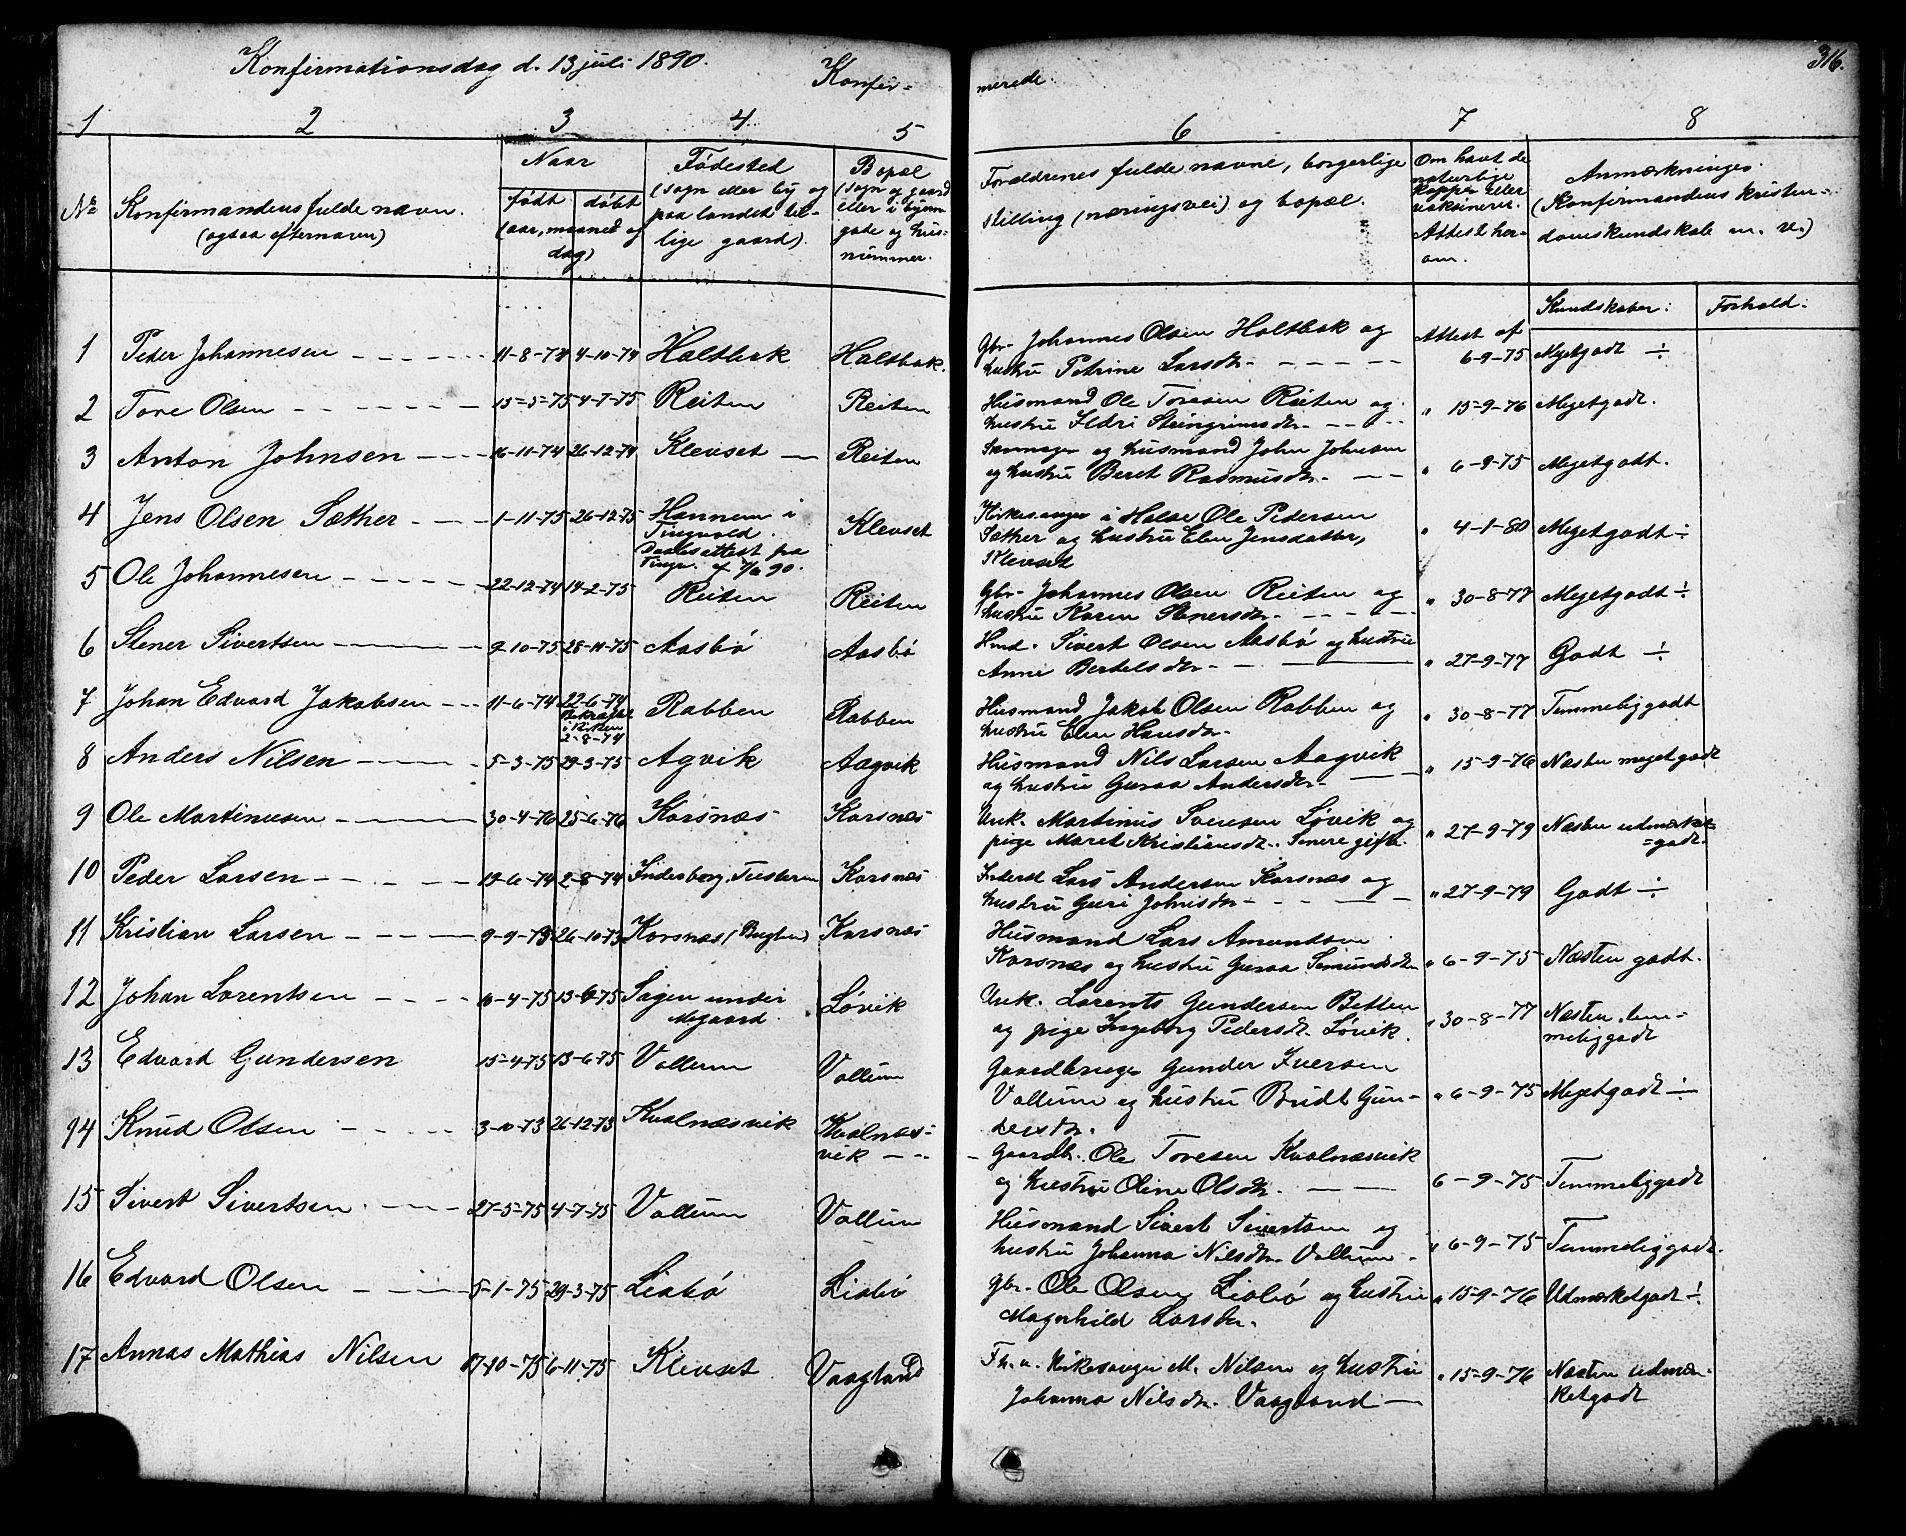 Konfirmationsdag d. 13 juli 1890.
Konfir-
merede.
316.
1 2 3 4 5 6 7 8
No
Konfirmandens fulde navn.
(ogsaa efternavn)
Naar
født døbt
(aar, maaned og
dag)
Fødested
(sogn eller by og
paa landet til-
lige gaard).
Bopæl
(sogn og gaard
eller i byen
gade og hus-
nummer.
Forældrenes fulde navne, borgerlige
stilling (næringsvei) og bopæl.
Om havt de
naturlige
kopper eller
vaksineret.
Attest her-
om.
Anmærkninger.
(Konfirmandens kristen-
domskundskab m. v.)
Kundskaber: Forhold:
1 Peder Johannesen 11-8-74 4-10-74 Holtbak Holtbak.
gbr. Johannes Olsen Holtbak og
hustru Petrine Larsdtr.
Attest af
6-9-75 Megetgodt ÷
2 Tore Olsen 15-5-75 4-7-75 Reiten Reiten
Husmand Ole Toresen Reiten og
hustru Ildri Steingrimsdtr.
" 15-9-76 Megetgodt.
3 Anton Johnsen 16-11-74 26-12-74 Klevset Reiten
og husmand John Johnsen
og hustru Beret Rasmusdtr.
" 6-9-75 Megetgodt.
4 Jens Olsen Sæther 1-11-75 26-12-75 Hannem i
Tingvold.
Daabsattest fra
Tingv. af 7/6 90.
Klevset
Kirkesanger i Halse Ole Pedersen
Sæther og hustru Elen Jensdatter,
Klevset
" 4-1-80 Megetgodt ÷
5 Ole Johannesen 22-12-74 14-2-75 Reiten Reiten
Gbr. Johannes Olsen Reiten og
hustru Karen Stenersdtr.
" 30-8-77 Megetgodt ÷
6 Stener Sivertsen 9-10-75 28-11-75 Aasbø Aasbø
Hmd. Sivert Olsen Aasbø og hustru
Anne Bertelsdtr.
" 27-9-77 Godt ÷
7 Johan Edvard Jakobsen 11-6-74 22-6-74
Bekræftet
i Kirken
2-8-74
Rabben Rabben
Husmand Jakob Olsen Rabben og
hustru Elen Hansdtr.
" 30-8-77 Temmeliggodt
8 Anders Nilsen 5-3-75 29-3-75 Agvik Aagvik
Husmand Nils Larsen Aagvik
og hustru Guraa Andersdtr.
" 15-9-76 Næsten megetgodt
9 Ole Martinusen 30-4-76 25-6-76 Korsnæs Korsnæs
Unk. Martinus Svensen Løvik og
pige Maret Kristiansdtr. Senere gifte.
" 27-9-79 Næsten udmærket
=godt.
10 Peder Larsen 19-6-74 2-8-74 Inderberg, Tusteren Korsnæs
Inderst Lars Andersen Korsnæs og
hustru Guri Johnsdtr.
" 27-9-79 Godt ÷
11 Kristian Larsen 9-9-73 26-10-73 Korsnæs (Bugten) Korsnæs
Husmand Lars Amundsen
Korsnæs og hustru Guraa Semundsdtr
" 6-9-75 Næsten godt.
12 Johan Lorentsen 6-4-75 13-6-75 Sagen under
Megaard.
Løvik
Unk. Lorents Gundersen Botten
og pige Ingeborg Pedersdt. Løvik.
" 30-8-77 Næsten tem-
meliggodt
13 Edvard Gundersen 15-4-75 13-6-75 Vollum Vollum
Gaardbruger Gunder Iversen
Vollum og hustru Brudt Gun-
dersdtr.
" 6-9-75 Megetgodt ÷
14 Knud Olsen 3-10-73 26-12-73 Kvalnæsvik Kvalnæs-
vik
Gaardb. Ole Toresen Kvalnæsvik
og hustru Oline Olsdtr.
6-9-75 Temmeliggodt
15 Sivert Sivertsen 27-5-75 4-7-75 Vollum Vollum
Husmand Sivert Sivertsen og
hustru Johanna Nilsdtr. Vollum
" 6-9-75 Temmeliggodt.
16 Edvard Olsen 5-1-75 29-3-75 Liabø Liabø
gbr. Ole Olsen Liabø og hustru
Magnhild Larsdtr.
" 15-9-76 Udmærketgodt ÷
17 Annas Mathias Nilsen 17-10-75 6-11-75 Klevset Vaagland
Fh.v. Kirkesanger M. Nilsen og hustru
Johanna Nilsdtr. Vaagland
" 15-9-76 Næsten udmær-
ketgodt